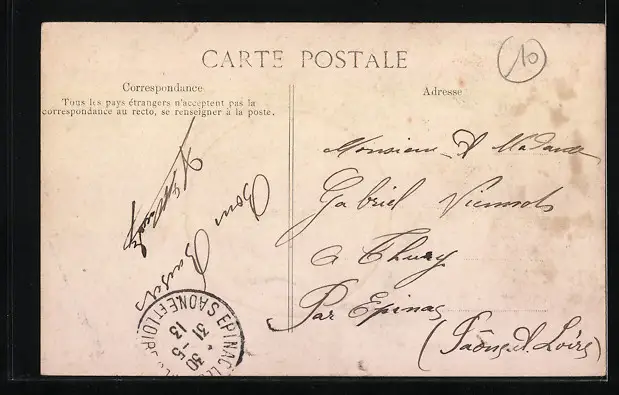 10
CARTE POSTALE
Correspondance
Tous les pays étrangers n'acceptent pas la
correspondance au recto, se renseigner à la poste.
Adresse
Monsieur et Madame
Gabriel
a Thury
Par Epinac
(Saône et Loire)
Bons
Baisers
EPINAC LES
SAONE ET LOIRE
31 - 5
13